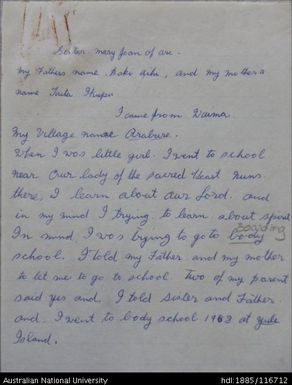 Sister mary Joan of arc.
My Fathers name Aihi, and my mother's
name
I came from Waima.
My Village name Arabure.
When I was little girl. I went to school
near Our lady of the sacred Heart nuns.
there, I learn about Our Lord. and
in my mind I trying to learn about
In mind I was trying to go to body boarding
school. I told my Father and my mother
to let me to go to school. Two of my parent
said yes and, I told sister and Father.
and I went to body school 1963 at yule
Island.
Australian National University
hdl:1885/116712